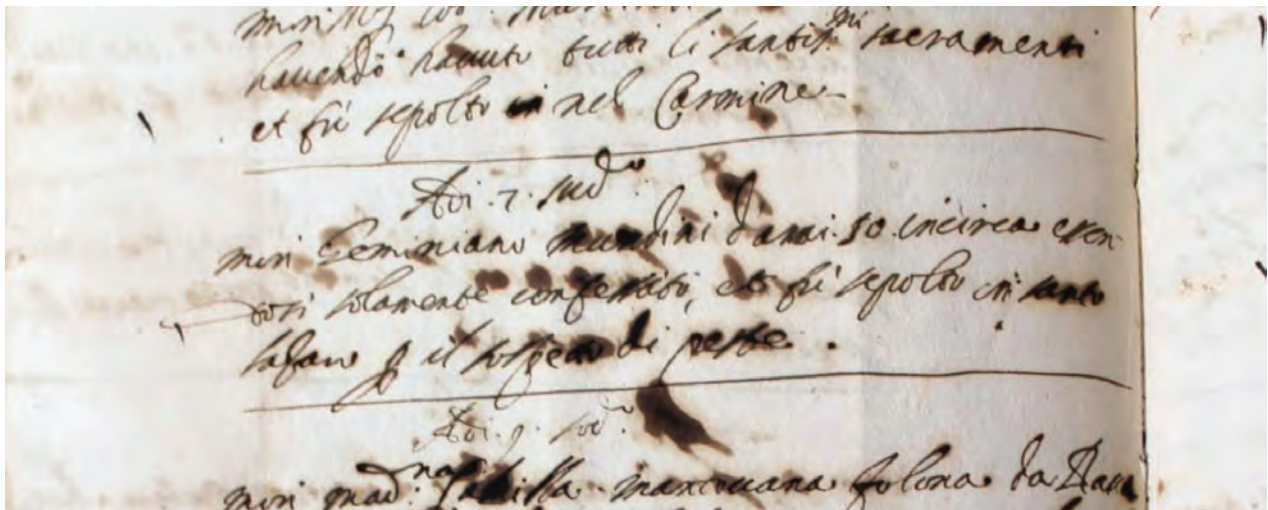 havendo havuto tutti li santis.mi sacramenti
et fù sepolto in nel Carmine
Adi. 7. sud.o
morì Geminiano Mundini d'anni 50 incirca essen
dosi solamente confessato, et fù sepolto in santo
p il sospetto di peste.
Adi. 9. sud.o
morì mad.na Camilla mantovana da